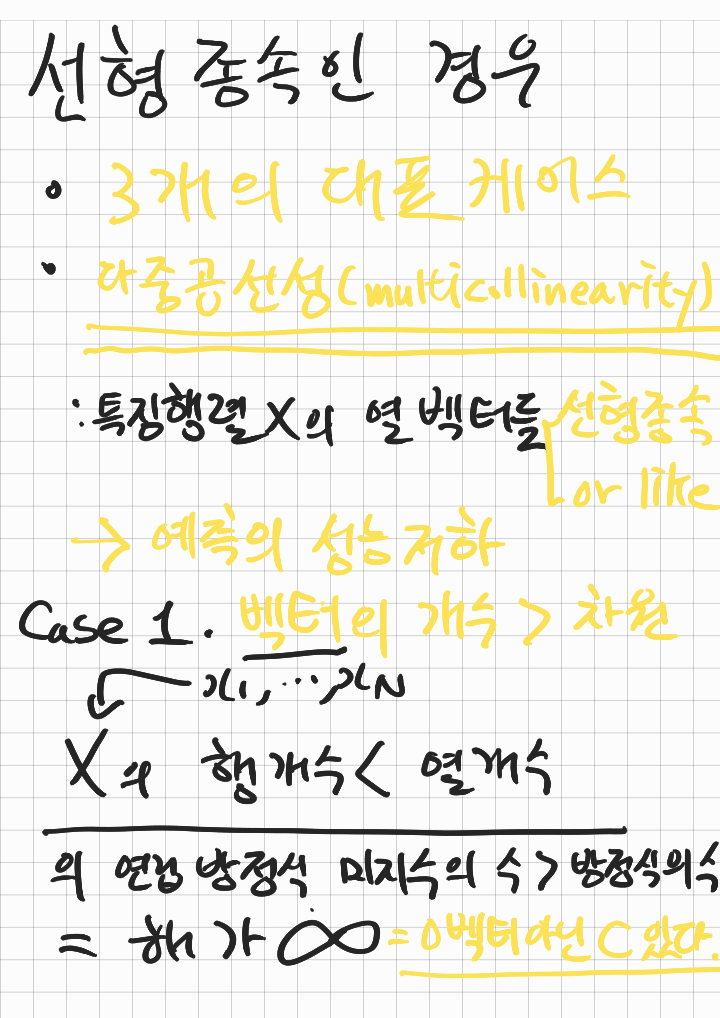 선형 종속인 경우
• 3개의 대표 케이스
• 다중공선성(multicollinearity)
: 특징행렬 X의 열 벡터들 { 선형종속
or like
→ 예측의 성능저하
Case 1. 벡터의 개수 > 차원
x₁, ⋯, x_N
X의 행개수 < 열개수
의 연립 방정식 미지수의 수 > 방정식의 수
= 해가 ∞ = 0벡터아닌 C 있다.